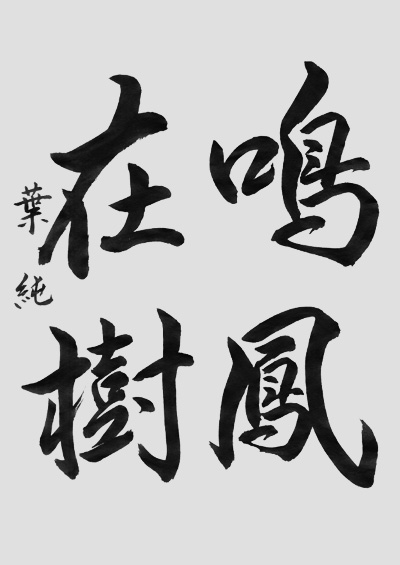 鳴鳳
在樹
葉純